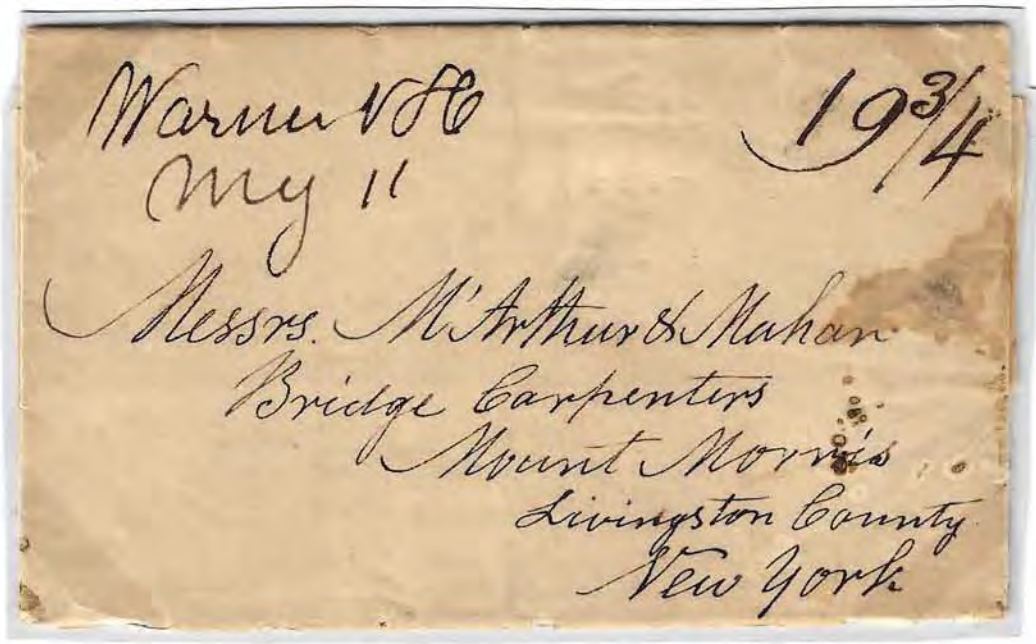 Warner NH
19 3/4
My 11
Messrs. M'Arthur & Mahan
Bridge Carpenters
Mount Morris
Livingston County
New York